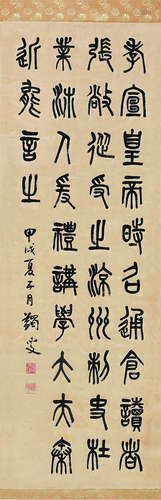 孝宣皇帝時召通倉讀者
張敞從受之涼州刺史杜
業沛人爰禮講學大夫秦
近能言之
甲戌夏五月蠲叟